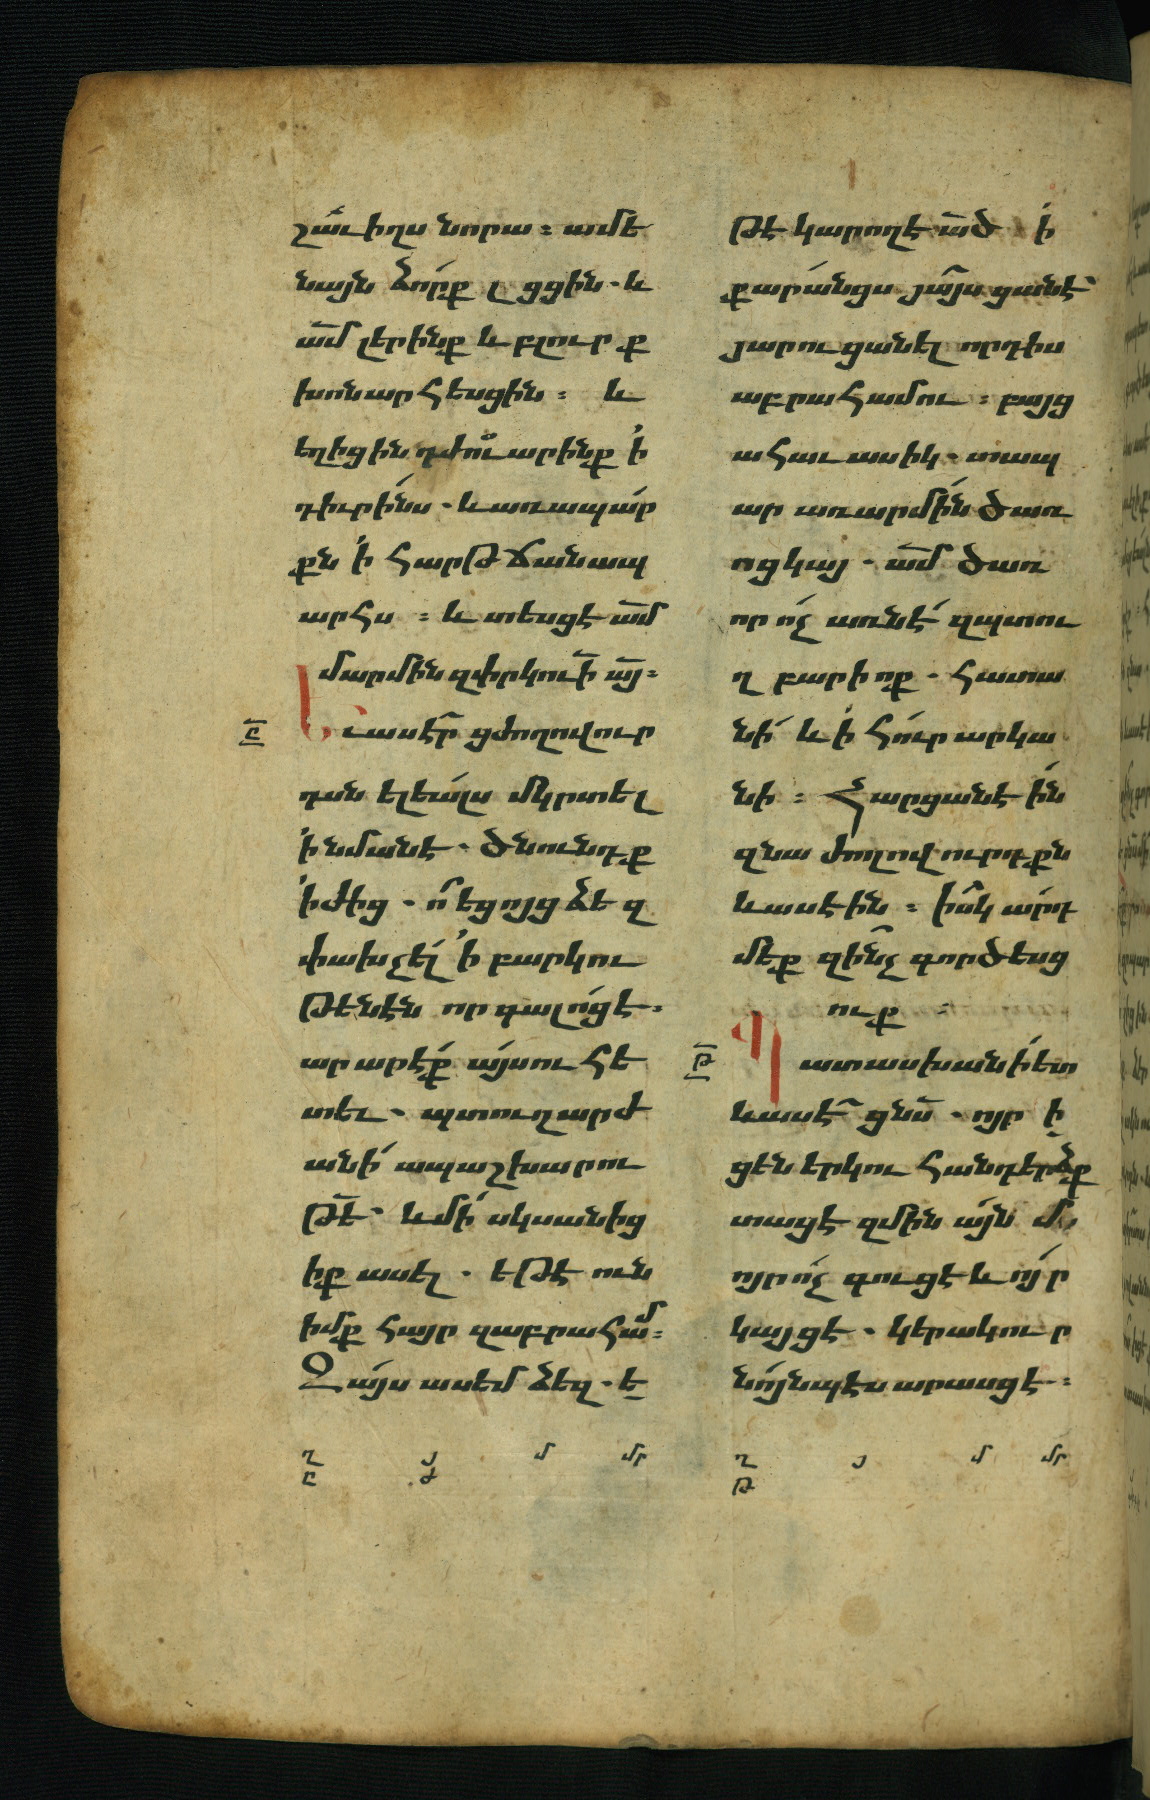 շաւիղս նորա ։ ամե
նայն ձորք լցցին ․ և
ամ լերինք և բլուրք
խոնարհեսցին ։ և
եղիցին դժուարինք ՛ի
դիւրինս ․ և առապար
քն ՛ի հարթ ճանապ
արհս ։ և տեսցէ ամ
մարմին զփրկուի այ ։
Ը
Եւ ասէր ցժողովուր
դսն ելեալս մկրտել
՛ի նմանէ ․ ծնունդք
՛իժից ․ ո եցոյց ձեզ
փախչել ՛ի բարկու
թենէն որ գալոցէ ։
արարէք այսուհե
տև ․ պտուղ արժ
անի ապաշխարու
թե ․ և մի սկսանից
իք ասել ․ եթէ ուն
իմք հայր զաբրահամ ։
Զայս ասեմ ձեզ ․ ե
թէ կարող է ած ՛ի
քարանցս յայսցանէ
յարուցանել որդիս
աբրահամու ։ բայց
ահաւասիկ ․ տապ
ար առ արմին ծառ
ոց կայ ․ ամ ծառ
որ ոչ առնէ զպտու
ղ բարիոք ․ հատա
նի և ՛ի հուր արկա
նի ։ Հարցանեին
զնա ժողովուրդքն
և ասէին ։ իսկ արդ
մեք զինչ գործեսց
ուք ։
Թ
Պատասխանի ետ
և ասէ ցնս ․ ոյր ի
ցեն երկու հանդերձք
տացէ զմին այնմ
ոյր ոչ գուցէ և ոյր
կայցէ ․ կերակուր
նոյնպէս արասցէ ։
ղ
ը
յ
ժ
մ
մր
ղ
թ
յ
մ
մր